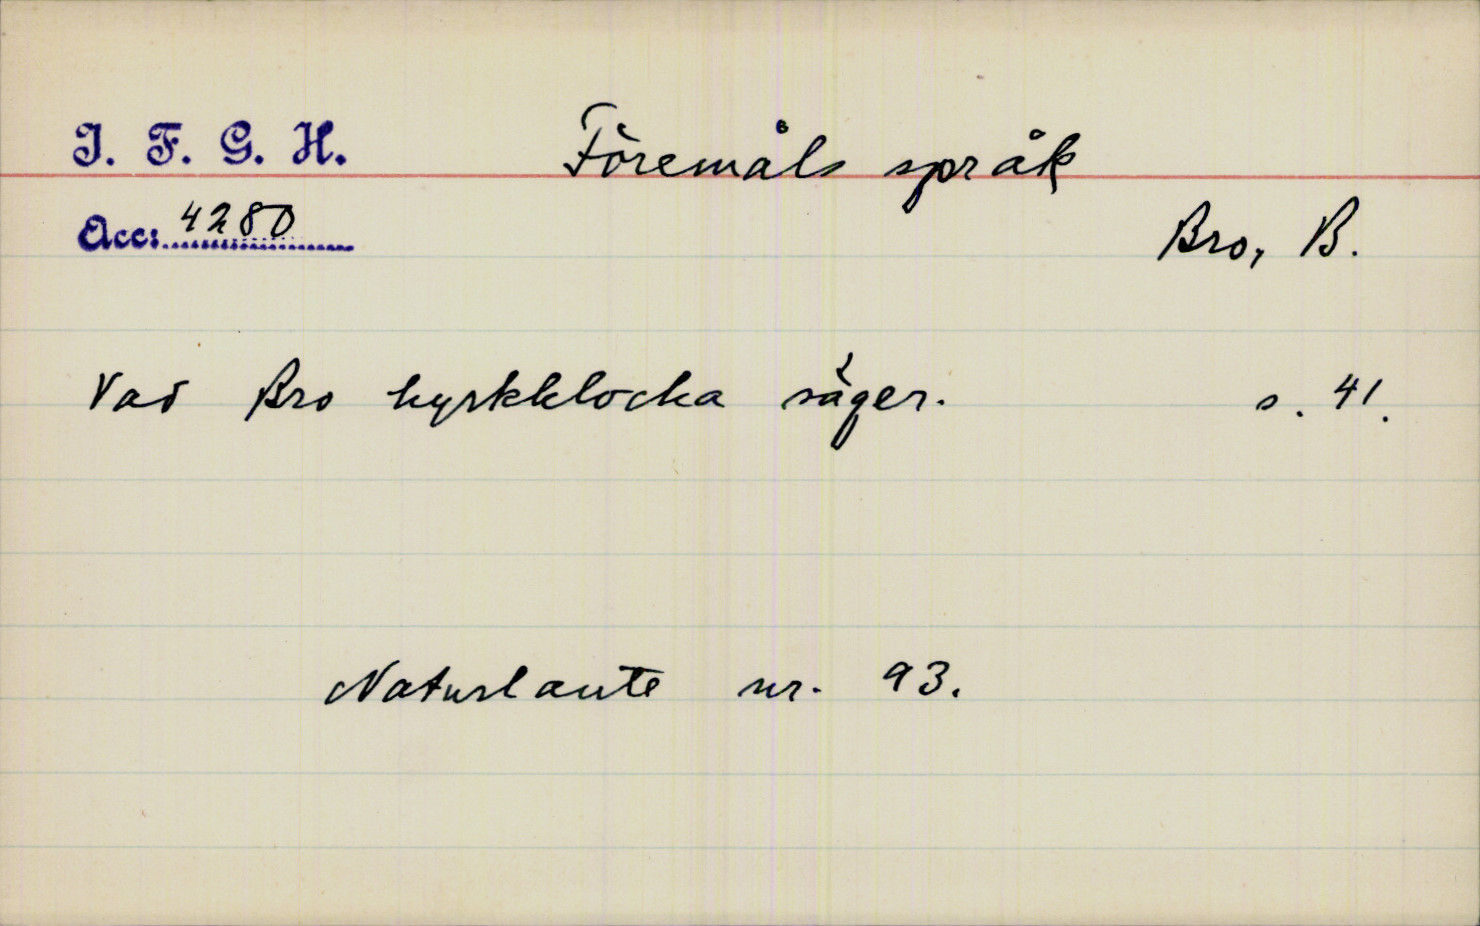 I. F. G. H.
Föremåls språk
Acc: 4280
Bro, B.
Vad Bro kyrkklocka säger. s. 41.
Naturlaute nr. 93.